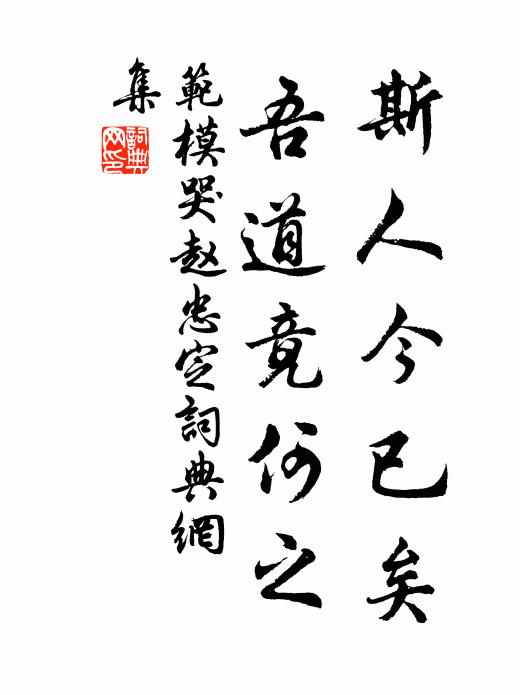 斯人今已矣
吾道竟何之
範模哭赵忠定詞典網
集
詞典網印